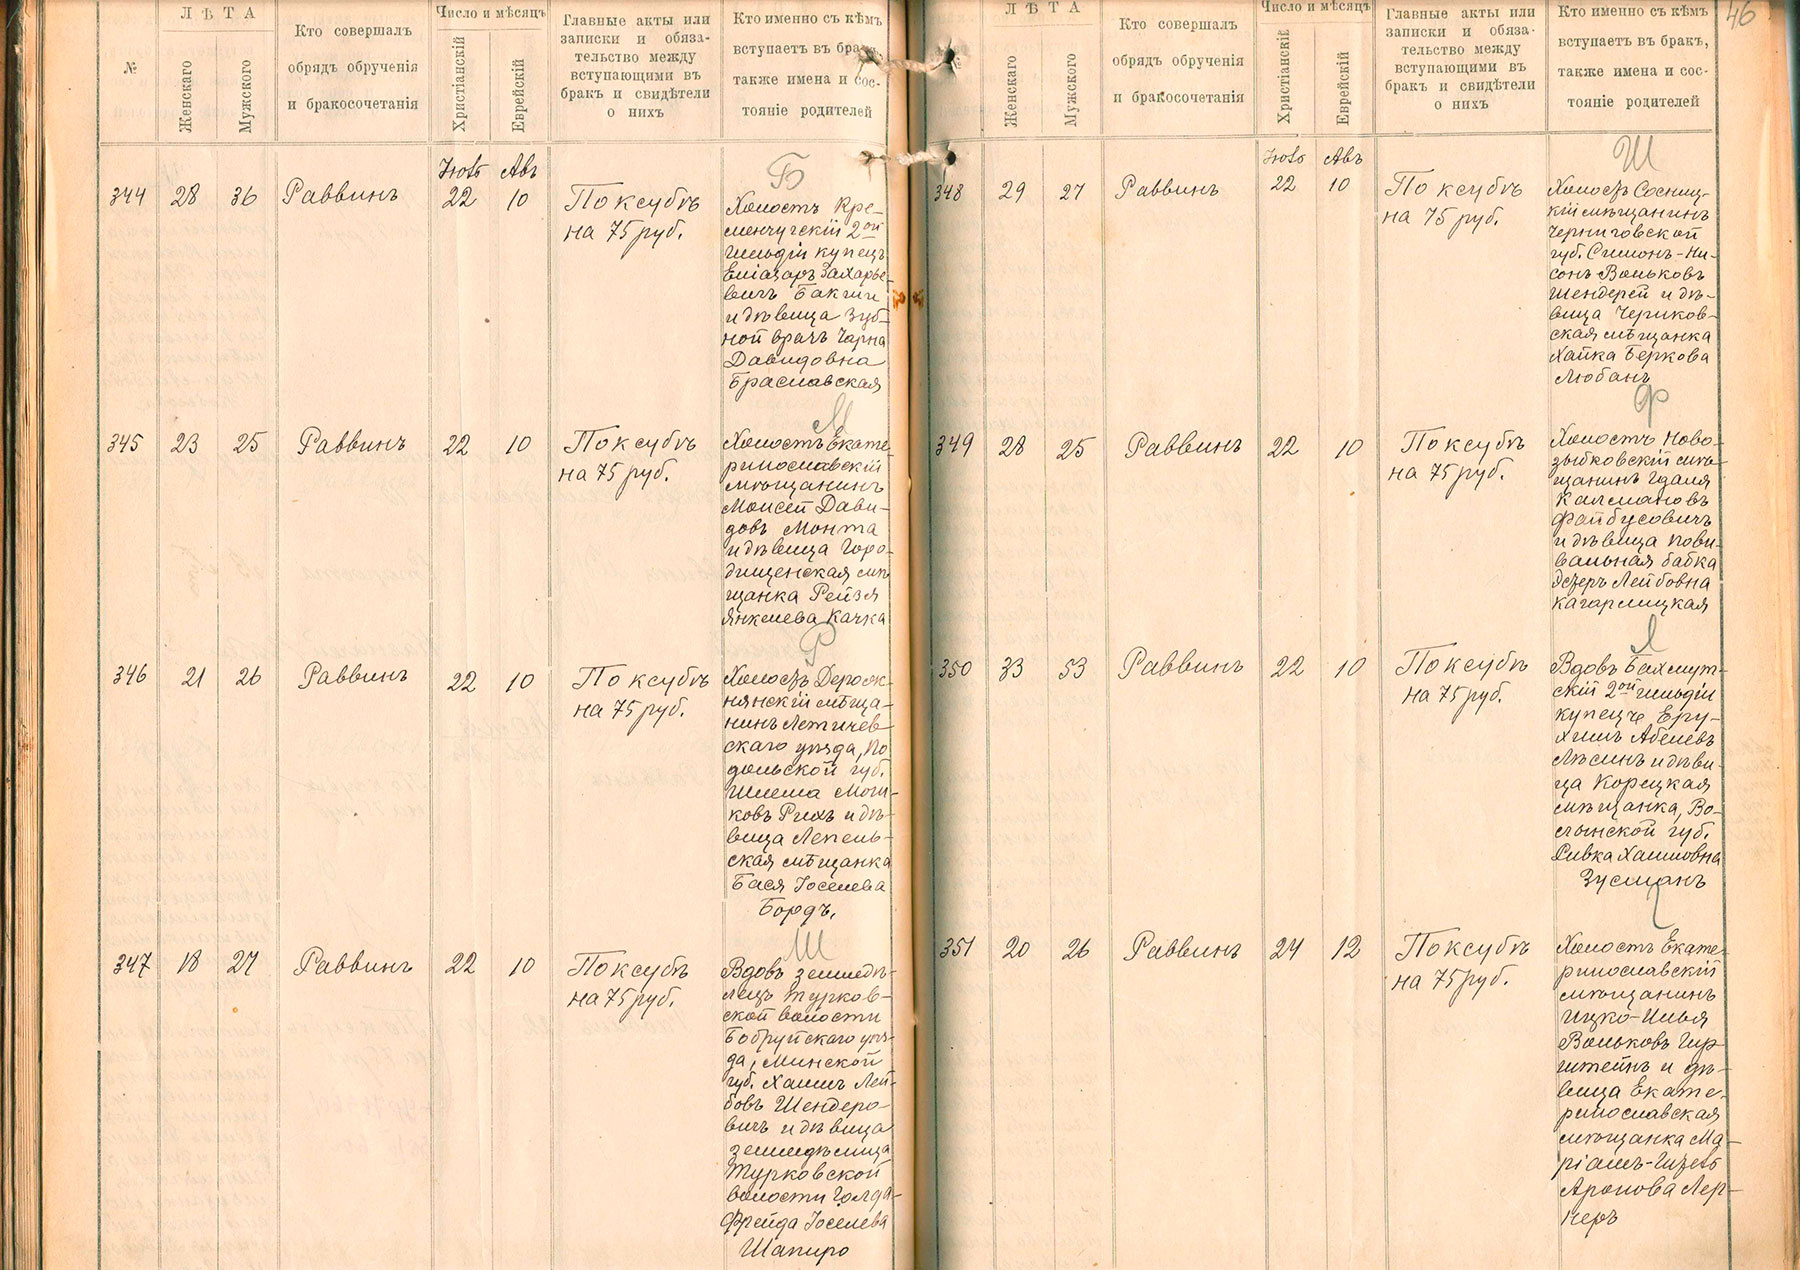 ЛѢТА
№
Женскаго
Мужского
Кто совершалъ
обрядъ обрученія
и бракосочетанія
Число и мѣсяцъ
Христіанскій
Еврейскій
Главные акты или
записки и обяза-
тельство между
вступающими въ
бракъ и свидѣтели
о нихъ
Кто именно съ кѣмъ
вступаетъ въ бракъ,
также имена и сос-
тояніе родителей
Авъ
Б
344 28 36 Раввинъ 22 10
По ксубѣ
на 75 руб.
Холостъ Кре-
менчугскій 2ой
гильдіи купецъ
Еліазаръ Захарье-
вичъ Баклии
и дѣвица зуб-
ной врачъ Чарна
Давидовна
Браславская
М
345 23 25 Раввинъ 22 10
По ксубѣ
на 75 руб.
Холостъ Екате-
ринославскій
мѣщанинъ
Моисей Дави-
довъ Монта
и дѣвица Горо-
дищенская мѣ-
щанка Рейзя
Янкелева Качка
Р
346 21 26 Раввинъ 22 10
По ксубѣ
на 75 руб.
Холостъ Дераж-
нянскій мѣща-
нинъ Летичев-
скаго уѣзда, По-
дольской губ.
Шлема Мош-
ковъ Рихъ и дѣ-
вица Лепель-
ская мѣщанка
Бася Іоселева
Бордъ.
Ш
347 18 27 Раввинъ 22 10
По ксубѣ
на 75 руб.
Вдовъ земледѣ-
лецъ Турков-
ской волости
Бобруйскаго уѣз-
да, Минской
губ. Хаимъ Лей-
бовъ Шендеро-
вичъ и дѣвица
земледѣлица
Турковской
волости Голда-
Фрейда Іоселева
Шапиро
46
ЛѢТА
№
Женскаго
Мужского
Кто совершалъ
обрядъ обрученія
и бракосочетанія
Число и мѣсяцъ
Христіанскій
Еврейскій
Главные акты или
записки и обяза-
тельство между
вступающими въ
бракъ и свидѣтели
о нихъ
Кто именно съ кѣмъ
вступаетъ въ бракъ,
также имена и сос-
тояніе родителей
Авъ
Ш
348 29 27 Раввинъ 22 10
По ксубѣ
на 75 руб.
Холостъ Сосниц-
кій мѣщанинъ
Черниговской
губ. Симонъ-Ни-
сонъ Вольковъ
Шендерей и дѣ-
вица Чериков-
ская мѣщанка
Хайка Беркова
Любанъ
Ф
349 28 25 Раввинъ 22 10
По ксубѣ
на 75 руб.
Холостъ Ново-
зыбковскій мѣ-
щанинъ Гдалія
Калмановъ
Файбусовичъ
и дѣвица пови-
вальная бабка
Эсѳеръ Лейбовна
Кагарлицкая
Л
350 33 53 Раввинъ 22 10
По ксубѣ
на 75 руб.
Вдовъ Бахмут-
скій 2ой гильдіи
купецъ Еру-
химъ Абелевъ
Лѣсинъ и дѣви-
ца Корецкая
мѣщанка, Во-
лынской губ.
Ривка Хаимовна
Зусманъ
Г
351 20 26 Раввинъ 24 12
По ксубѣ
на 75 руб.
Холостъ Екате-
ринославскій
мѣщанинъ
Ицко-Илья
Вольковъ Гир-
штейнъ и дѣ-
вица Екате-
ринославская
мѣщанка Ма-
ріамъ-Гитель
Аронова Лер-
неръ